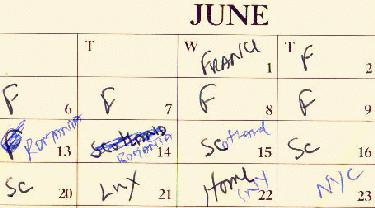 JUNE
T W T
FRANCE F
1 2
F F F F
6 7 8 9
Romania Romania Scotland Sc
13 14 15 16
Sc Home NYC
20 21 22 23